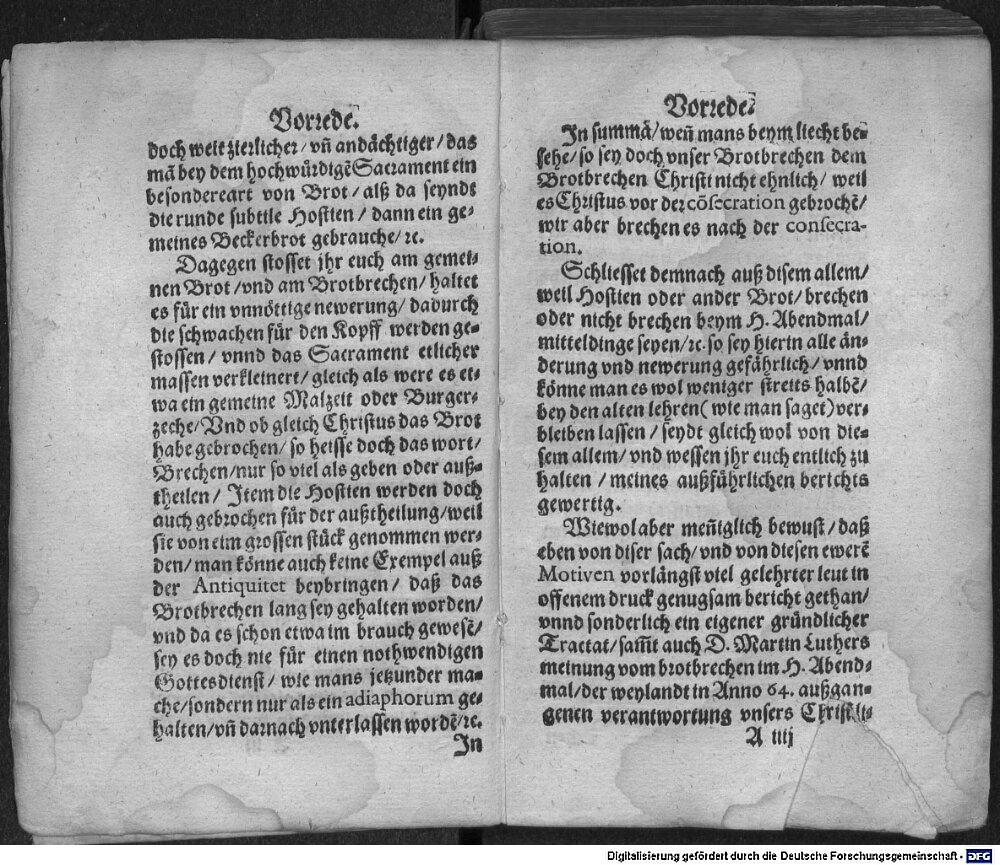 Vorrede.
doch weit zierlicher/ vñ andächtiger/ das
mã bey dem hochwürdigẽ Sacrament ein
besondere art von Brot/ alß da seyndt
die runde subtile Hostien/ dann ein ge-
meines Beckerbrot gebrauche/ ꝛc.
Dagegen stosset jhr euch am gemei-
nen Brot/ vnd am Brotbrechen/ haltet
es für ein vnnöttige newerung/ dadurch
die schwachen für den Kopff werden ge-
stossen/ vnnd das Sacrament etlicher
massen verkleinert/ gleich als were es et-
wa ein gemeine Malzeit oder Burger-
zeche/ Vnd ob gleich Christus das Brot
habe gebrochen/ so heisse doch das wort/
Brechen/ nur so viel als geben oder auß-
theilen/ Item die Hostien werden doch
auch gebrochen für der außtheilung/ weil
sie von eim grossen stück genommen wer-
den/ man könne auch keine Exempel auß
der Antiquitet beybringen/ daß das
Brotbrechen lang sey gehalten worden/
vnd da es schon etwa im brauch gewesẽ/
sey es doch nie für einen nothwendigen
Gottesdienst/ wie mans jetzunder ma-
che/ sondern nur als ein adiaphorum ge-
halten/ vñ darnach vnterlassen wordẽ/ ꝛc.
In
Vorrede.
In summã/ weñ mans beym liecht be-
sehe/ so sey doch vnser Brotbrechen dem
Brotbrechen Christi nicht ehnlich/ weil
es Christus vor der cõsecration gebrochẽ/
wir aber brechen es nach der consecra-
tion.
Schliesset demnach auß disem allem/
weil Hostien oder ander Brot/ brechen
oder nicht brechen beym H. Abendmal/
mitteldinge seyen/ ꝛc. so sey hierin alle än-
derung vnd newerung gefährlich/ vnnd
könne man es wol weniger streits halbẽ/
bey den alten lehren (wie man saget) ver-
bleiben lassen/ seydt gleich wol von die-
sem allem/ vnd wessen jhr euch entlich zu
halten/ meines außführlichen berichts
gewertig.
Wiewol aber meñiglich bewust/ daß
eben von diser sach/ vnd von diesen ewerẽ
Motiven vorlängst viel gelehrter leut in
offenem druck genugsam bericht gethan/
vnnd sonderlich ein eigener gründlicher
Tractat/ sam̃t auch D. Martin Luthers
meinung vom brotbrechen im H. Abend-
mal/ der weylandt in Anno 64. außgan-
genen verantwortung vnsers Christli-
A iiij
Digitalisierung gefördert durch die Deutsche Forschungsgemeinschaft - DFG